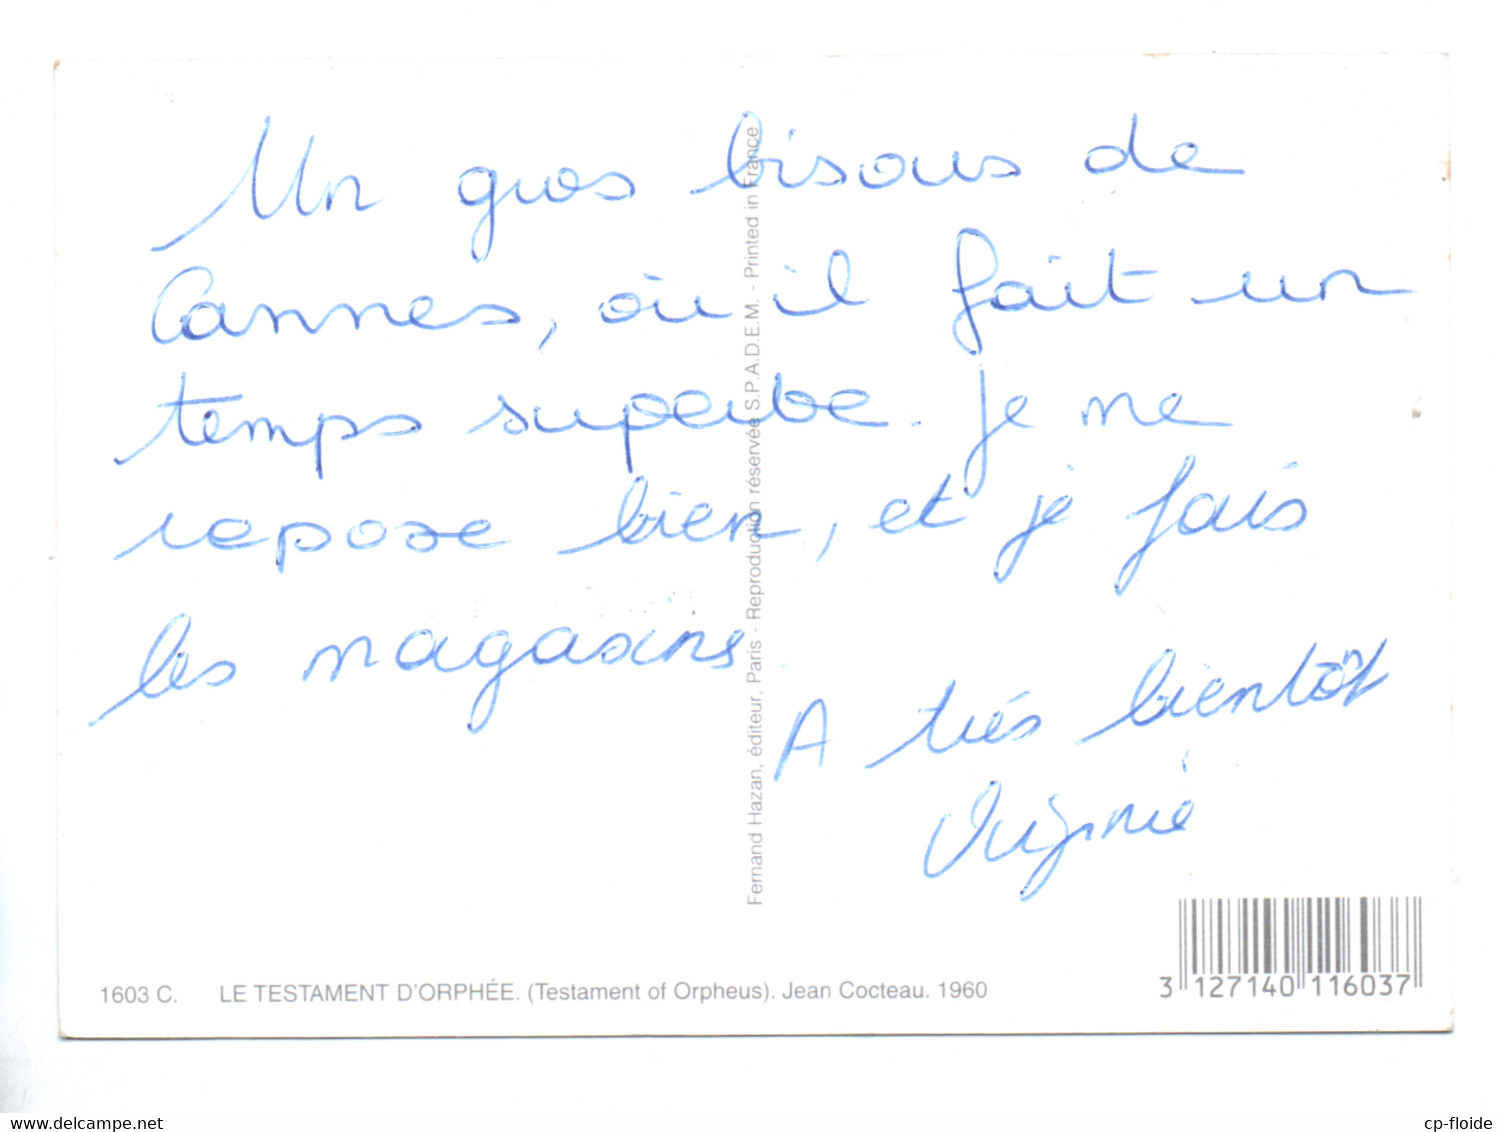 Un gros bisous de
Cannes, où il fait un
temps superbe. Je me
repose bien, et je fais
les magasins.
A trés bientôt
Virginie
Fernand Hazan, éditeur, Paris - Reproduction réservée S.P.A.D.E.M. - Printed in France
1603 C. LE TESTAMENT D'ORPHÉE. (Testament of Orpheus). Jean Cocteau. 1960
3 127140 116037
www.delcampe.net
cp-floide